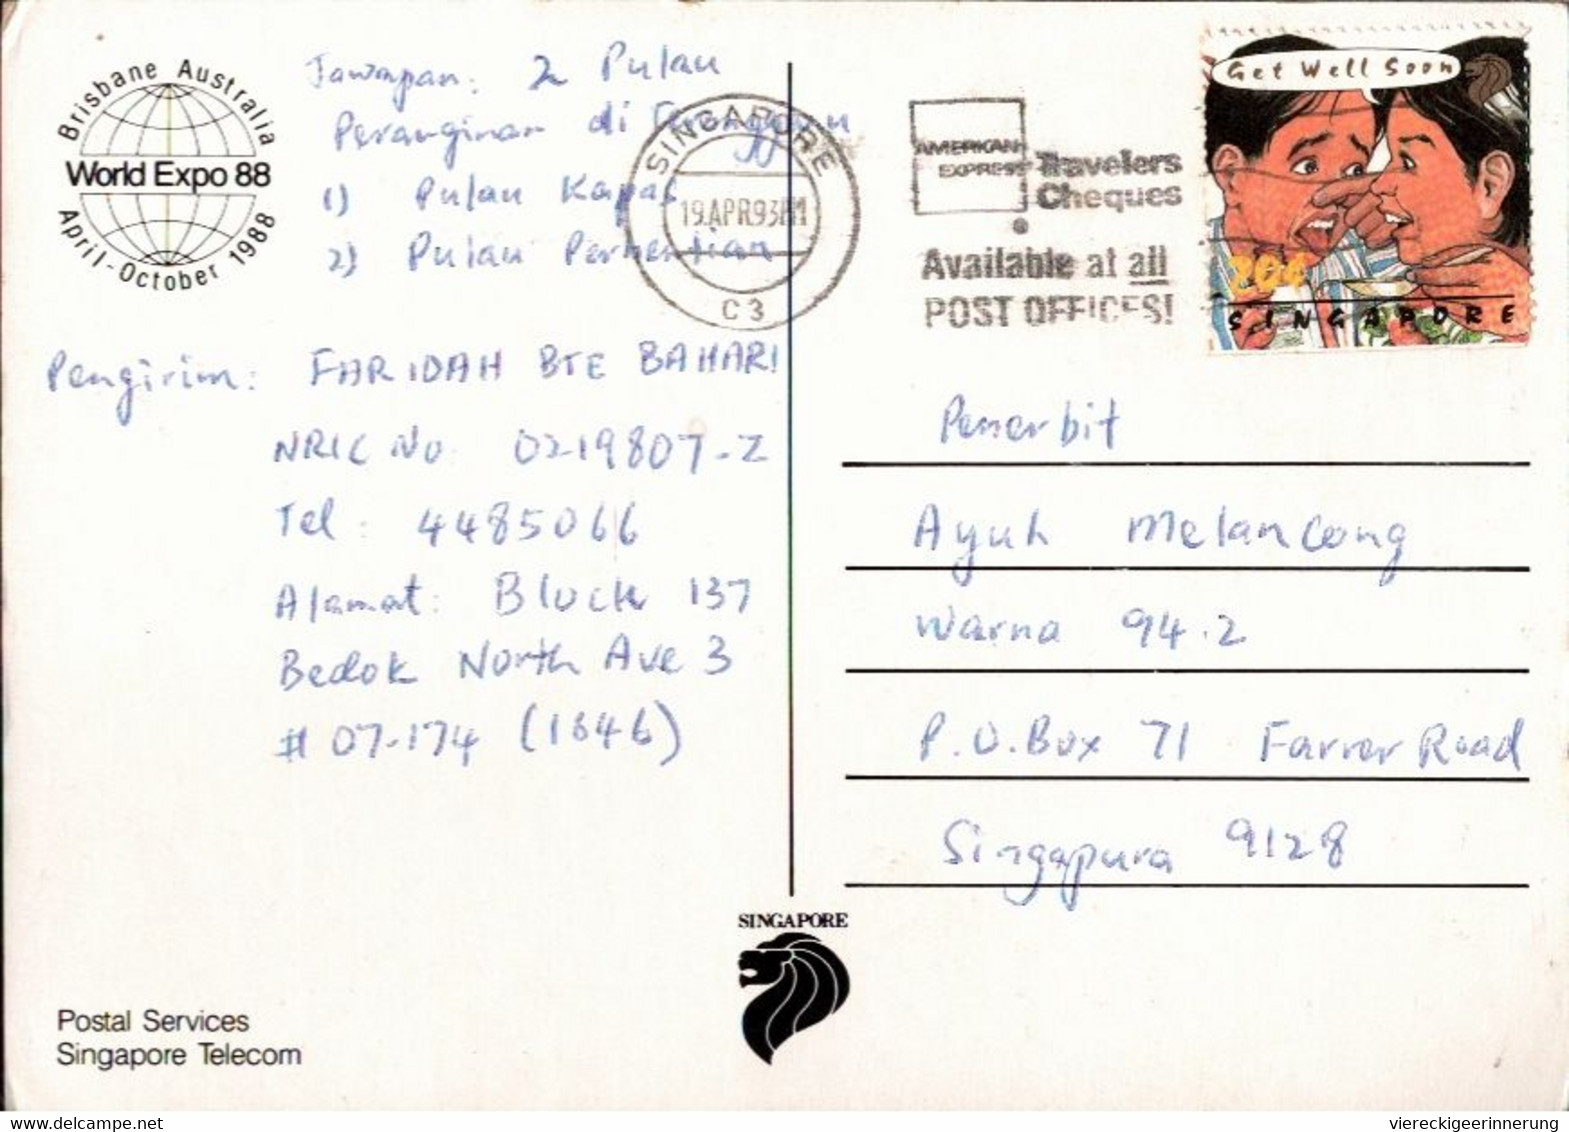 Brisbane Australia
World Expo 88
April - October 1988
Jawapan: 2 Pulau
Peranginan di Trengganu
1) Pulau Kapas
2) Pulau Perhentian
SINGAPORE
19.APR.93
C 3
AMERICAN EXPRESS Travelers Cheques
Available at all
POST OFFICES!
Get Well Soon
20¢
SINGAPORE
Pengirim: FARIDAH BTE BAHARI
NRIC No. 0219807-Z
Tel: 4485066
Alamat: Block 137
Bedok North Ave 3
# 07-174 (1646)
Penerbit
Ayuh Melancong
Warna 94.2
P.O.Box 71 Farrer Road
Singapura 9128
SINGAPORE
Postal Services
Singapore Telecom
delcampe.net
viereckigeerinnerung